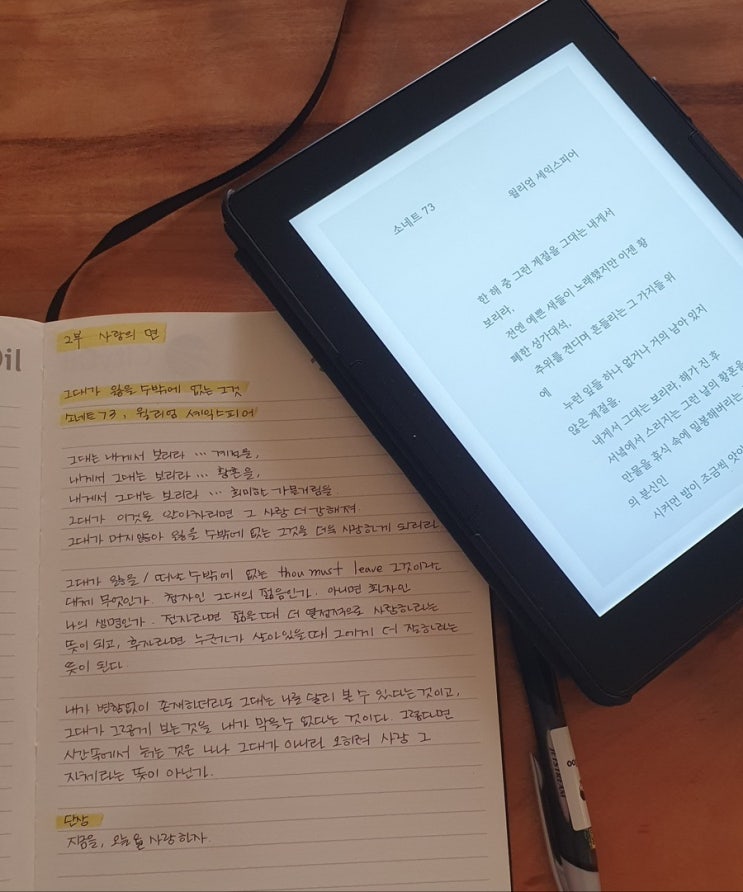 2부 사랑의 면
그대가 잃을 수밖에 없는 그것
소네트 73, 윌리엄 셰익스피어
그대는 내게서 보리라 ... 계절을,
내게서 그대는 보리라 ... 황혼을,
내게서 그대는 보리라 ... 희미한 가물거림을.
그대가 이것을 알아차리면 그 사랑 더 강해져
그대가 머지않아 잃을 수밖에 없는 그것을 더욱 사랑하게 되리라
그대가 잃을 / 떠날 수밖에 없는 thou must leave 그것이라는
대체 무엇인가. 청자인 그대의 젊음인가. 아니면 화자인
나의 생명인가. 전자라면 젊을 때 더 열정적으로 사랑하라는
뜻이 되고, 후자라면 누군가가 살아있을 때 그에게 더 잘하라는
뜻이 된다.
내가 변함없이 존재하더라도 그대는 나를 달리 볼 수 있다는 것이고,
그대가 그렇게 보는 것을 내가 막을 수 없다는 것이다. 그렇다면
시간 속에서 늙는 것은 나나 그대가 아니라 오히려 사랑 그
자체라는 뜻이 아닌가.
단상
지금을, 오늘을 사랑하자.
소네트 73
윌리엄 셰익스피어
한 해 중 그런 계절을 그대는 내게서
보리라,
전엔 예쁜 새들이 노래했지만 이젠 황
폐한 성가대석,
추위를 견디며 흔들리는 그 가지들 위
에
누런 잎들 하나 없거나 거의 남아 있지
않은 계절을.
내게서 그대는 보리라, 해가 진 후
서녘에서 스러지는 그런 날의 황혼을
만물을 휴식 속에 밀봉해버리는,
의 분신인
시커먼 밤이 조금씩
JETSTREAM